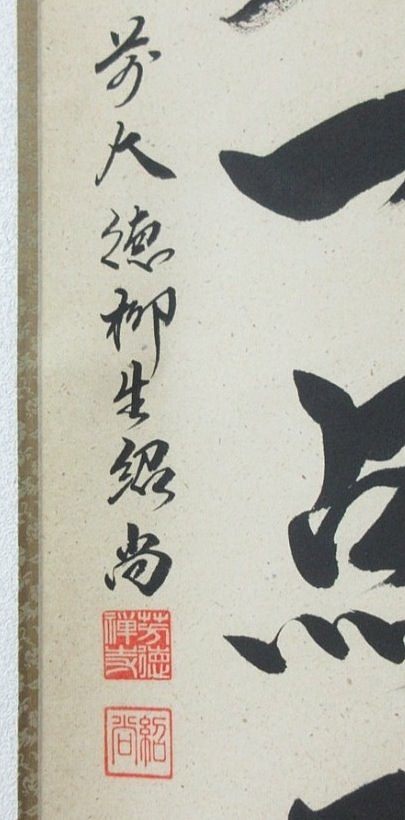 一点
前大徳柳生紹尚
芳徳禅寺
紹尚